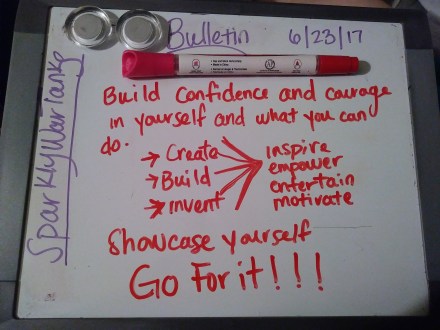 Bulletin 6/23/17
SparklyWarTanks
Build Confidence and courage
in yourself and what you can
do.
→ Create
→ Build
→ Invent
inspire
empower
entertain
motivate
Showcase yourself
Go For it!!!